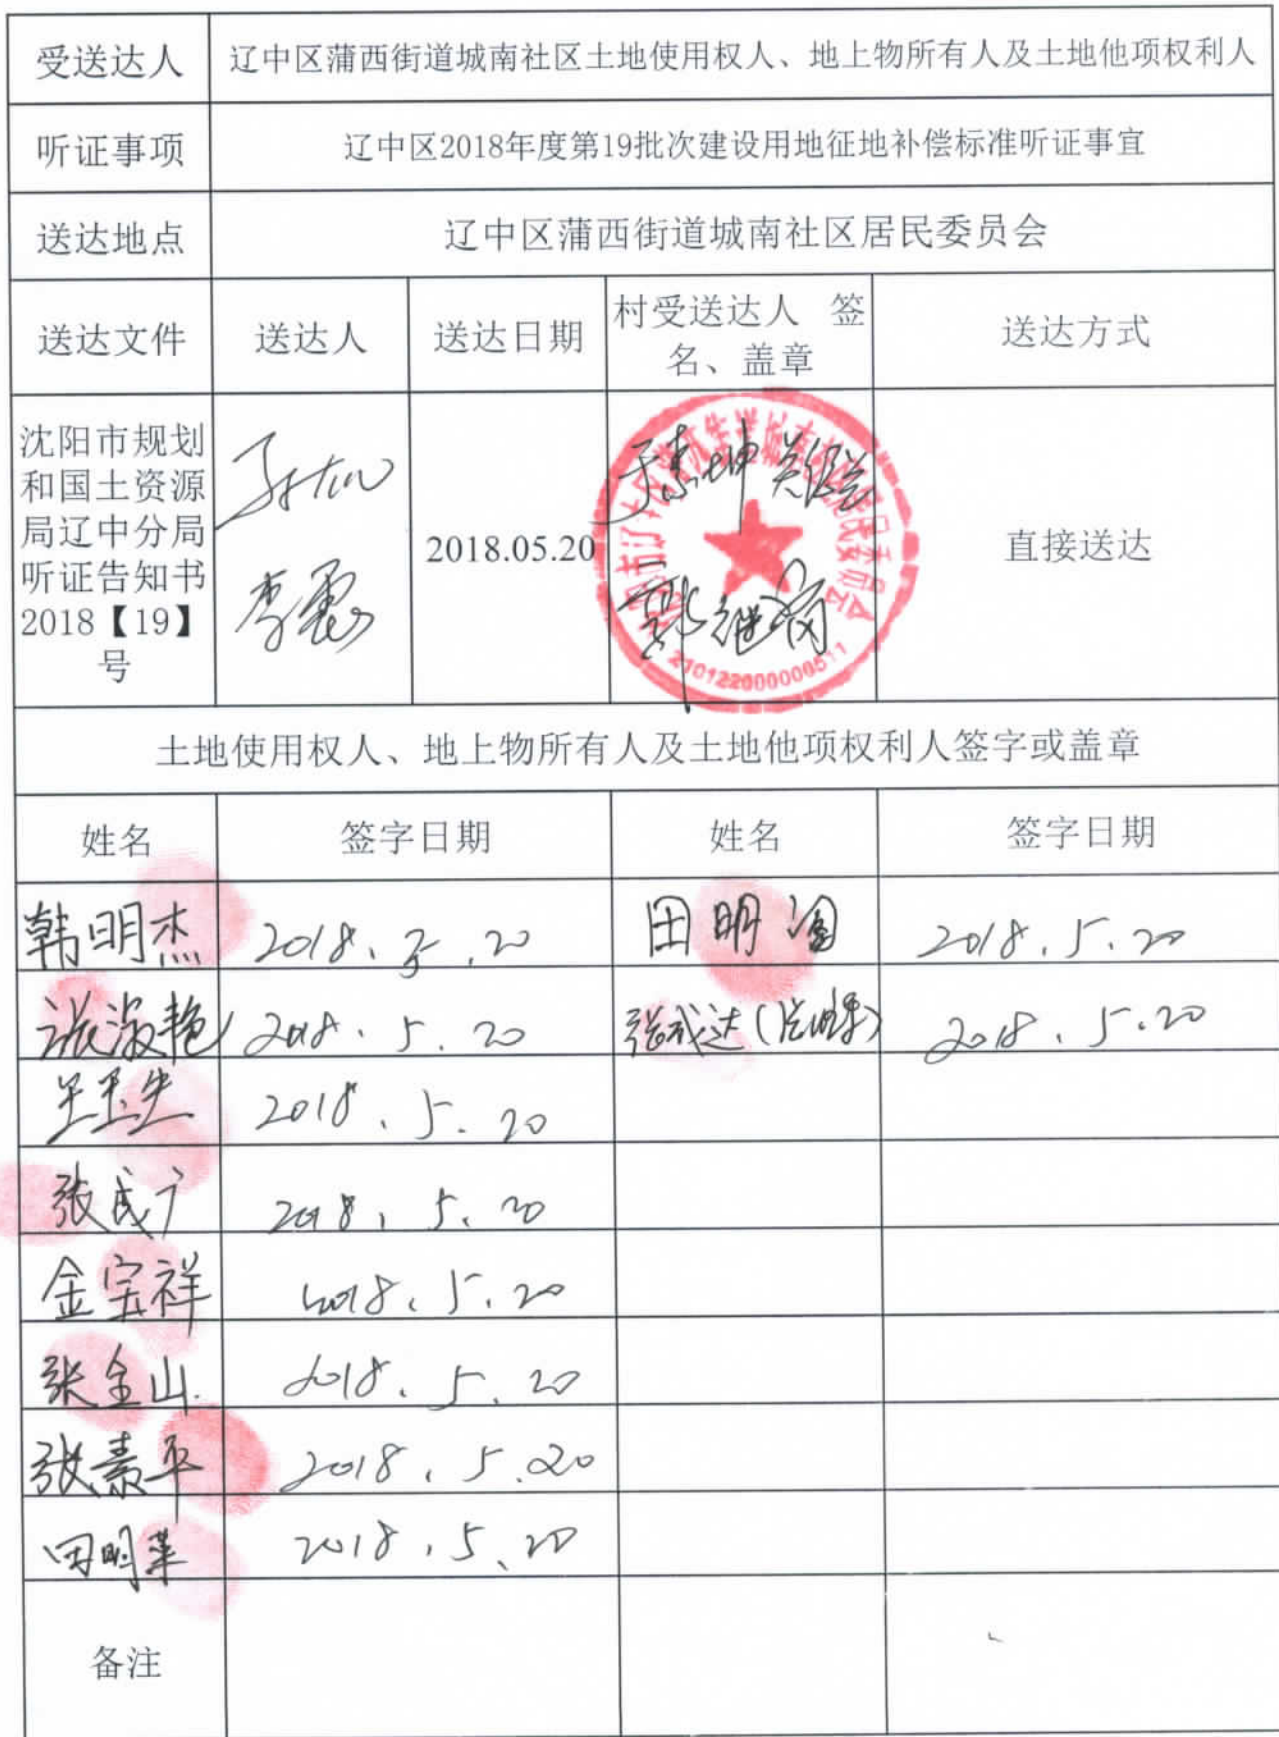 受送达人 辽中区蒲西街道城南社区土地使用权人、地上物所有人及土地他项权利人
听证事项 辽中区2018年度第19批次建设用地征地补偿标准听证事宜
送达地点 辽中区蒲西街道城南社区居民委员会
送达文件 送达人 送达日期 村受送达人 签名、盖章 送达方式
沈阳市规划
和国土资源
局辽中分局
听证告知书
2018【19】
号
2018.05.20
2101220000000511
直接送达
土地使用权人、地上物所有人及土地他项权利人签字或盖章
姓名 签字日期 姓名 签字日期
韩明杰 2018.5.20 田明 2018.5.20
张淑艳 2018.5.20 张成达 2018.5.20
2018.5.20
张成广 2018.5.20
金宝祥 2018.5.20
张金山 2018.5.20
张素平 2018.5.20
田明 2018.5.20
备注